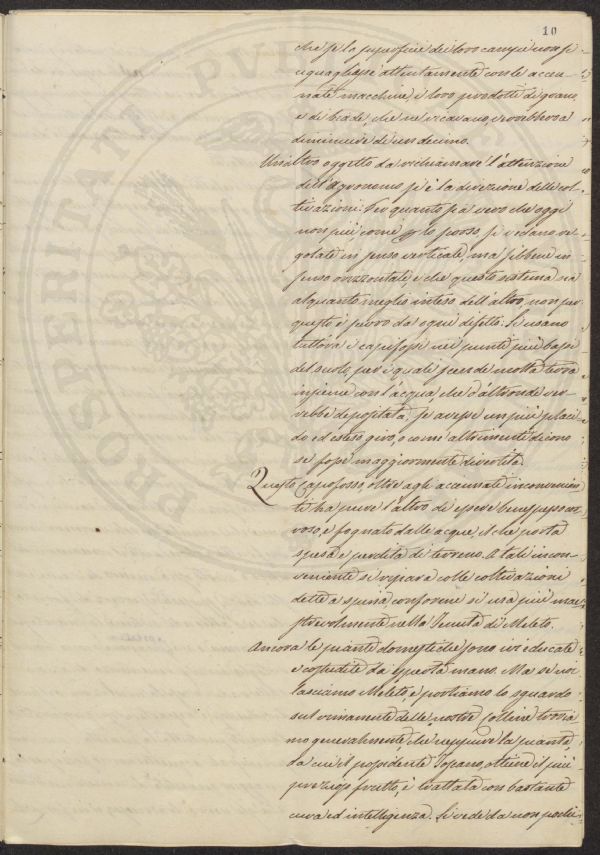 10
PROSPERITATI PVBLICAE
che se la superficie dei loro campi non si
eguagliasse attentamente con le accen-
nate macchine, i loro prodotti di grano
e di biade, che ne ricavano, verrebbero a
diminuire di un decimo.
Un'altro oggetto da richiamare l'attenzione
dell'Agronomo si è la direzione delle col-
tivazioni. Per quanto sia vero che oggi
non più come per lo passo, si vedano re-
golate in senso verticale, ma sibbene in
senso orizzontale e che questo sistema sia
alquanto meglio inteso dell'altro, non per
questo è puro da ogni difetto. Si usano
tuttora i capifossi nei punti più bassi
del suolo, per i quali scende molta terra
insieme con l'acqua, che d'altronde ver-
rebbe depositata, se avesse un più placi-
do ed esteso giro, o come altrimenti dicono
se fosse maggiormente divertita.
Questo Capofosso, oltre agli accennati inconvenien-
ti ha pure l'altro di essere bene spesso cor-
roso, e fognato dalle acque, il che porta
spesa e perdita di terreno. A tali incon-
veniente si ripara colle coltivazioni
dette a spina conforme si usa più mae-
strevolmente nella Tenuta di Meleto.
Ancora le piante domestiche sono ivi educate
e custodite da esperta mano. Ma se noi
lasciamo Meleto e portiamo lo sguardo
sul rimanente delle nostre Colline trovia-
mo generalmente, che neppure la pianta,
da cui il possidente Toscano, ottiene il più
prezioso frutto, è trattata con bastante
cura ed intelligenza. Si vede da non pochi